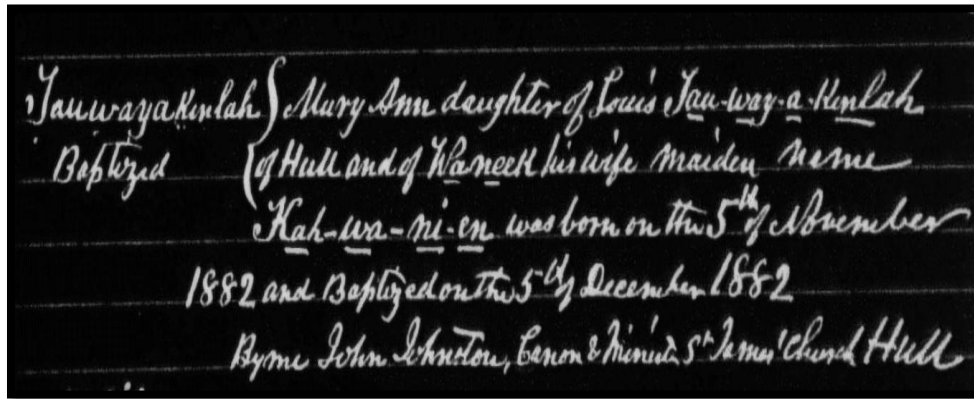 Tauwayakenlah } Mary Ann daughter of Louis Tau-way-a-Kenlah
Baptized { of Hull and of Waneek his wife maiden name
Kah-wa-ni-en was born on the 5th of November
1882 and Baptized on the 5th of December 1882
By me John Johnston, Canon & Minister St James' Church Hull